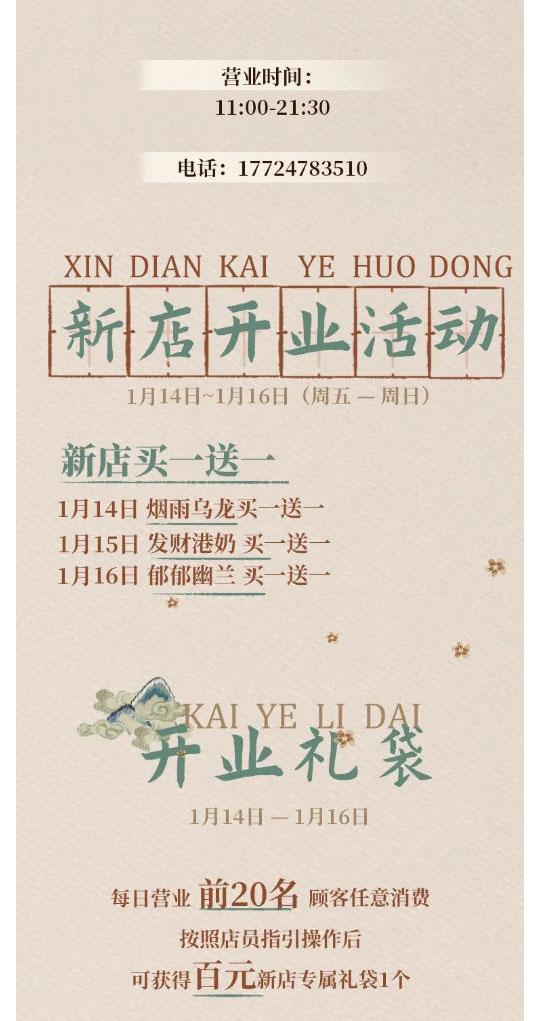 营业时间：
11:00-21:30
电话：17724783510
XIN DIAN KAI YE HUO DONG
新店开业活动
1月14日~1月16日（周五 — 周日）
新店买一送一
1月14日 烟雨乌龙买一送一
1月15日 发财港奶 买一送一
1月16日 郁郁幽兰 买一送一
KAI YE LI DAI
开业礼袋
1月14日 — 1月16日
每日营业 前20名 顾客任意消费
按照店员指引操作后
可获得百元新店专属礼袋1个